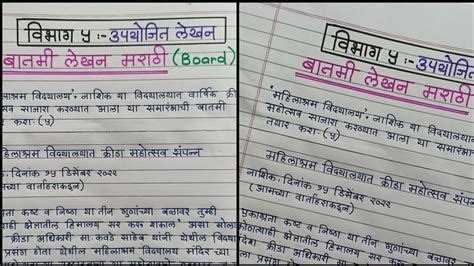 विभाग ५ :- उपयोजित लेखन
बातमी लेखन मराठी (Board)
लाश्रम विद्यालय', नाशिक या विद्यालयात वार्षिक क्री
त्सव साजरा करण्यात आला या समारंभाची बातमी
करा. (५)
हिलाश्रम विद्यालयात क्रीडा महोत्सव संपन्न
दिनांक १५ डिसेंबर २०२२
मच्या वार्ताहराकडून)
ग्रता कष्ट व निष्ठा या तीन गुणांच्या बळावर तुम्ही
क्षेत्रातील हिमालय सर करू शकाल' असा
क्रीडा अधिकारी मा. कवडे साहेब यांनी येथील
प्रसंग होता येथील महिलाश्रम विद्यालय मंदिर च्या
विभाग ५ :- उपयोजित
बातमी लेखन मराठी
'महिलाश्रम विद्यालय', नाशिक या विद्या
महोत्सव साजरा करण्यात आला या समारंभा
तयार करा. (५)
महिलाश्रम विद्यालयात क्रीडा महोत्सव संपन्न
नाशिक, दिनांक १५ डिसेंबर २०२२
(आमच्या वार्ताहराकडून)
एकाग्रता कष्ट व निष्ठा या तीन गुणांच्या बळावर
कोणत्याही क्षेत्रातील हिमालय सर करू
क्रीडा अधिकारी मा. कवडे साहेब यांनी
प्रसंग होता येथील महिलाश्रम विद्यालय